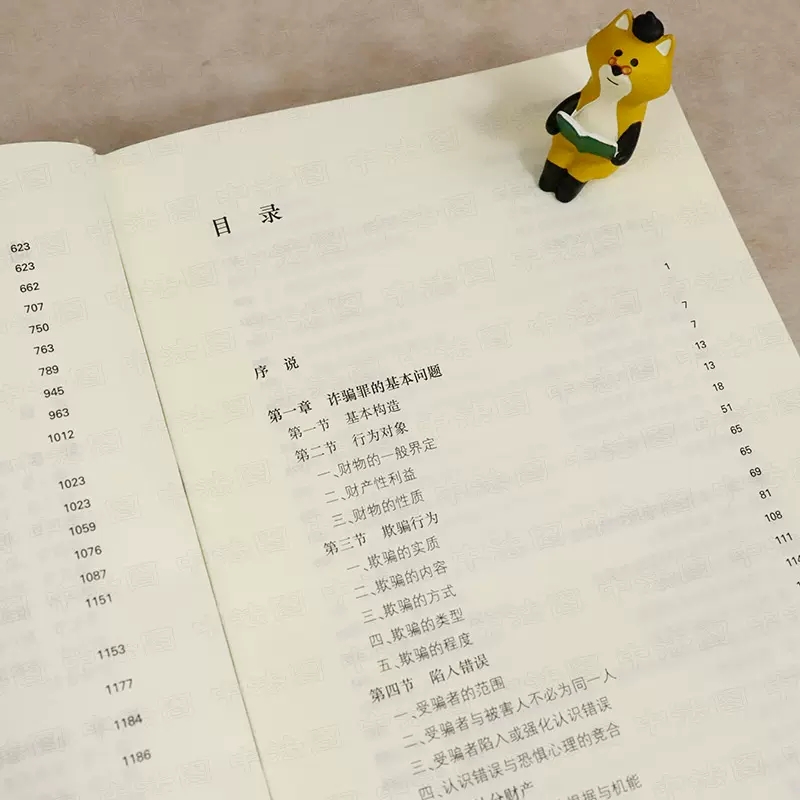 623
623
662
707
750
763
789
945
963
1012
1023
1023
1059
1076
1087
1151
1153
1177
1184
1186
目 录
序 说 1
第一章 诈骗罪的基本问题 7
第一节 基本构造 7
第二节 行为对象 13
一、财物的一般界定 13
二、财产性利益 18
三、财物的性质 51
第三节 欺骗行为 65
一、欺骗的实质 65
二、欺骗的内容 69
三、欺骗的方式 81
四、欺骗的类型 108
五、欺骗的程度 111
第四节 陷入错误
一、受骗者的范围
二、受骗者与被害人不必为同一人
三、受骗者陷入或强化认识错误
四、认识错误与恐惧心理的竞合
分财产
根据与机能